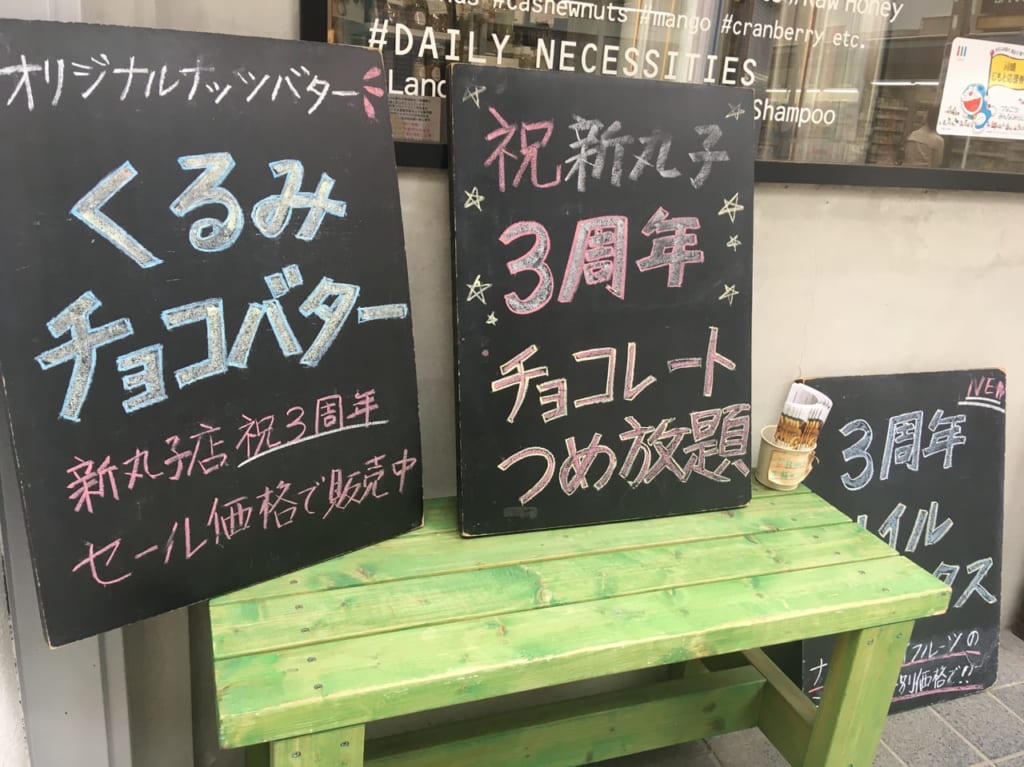 #cashewnuts #mango #cranberry etc.
Raw Honey
#DAILY NECESSITIES
Shampoo
オリジナルナッツバター
くるみ
チョコバター
新丸子店 祝3周年
セール価格で販売中
祝新丸子
3周年
チョコレート
つめ放題
3周年
イル
クス
フルーツの
別価格で!!